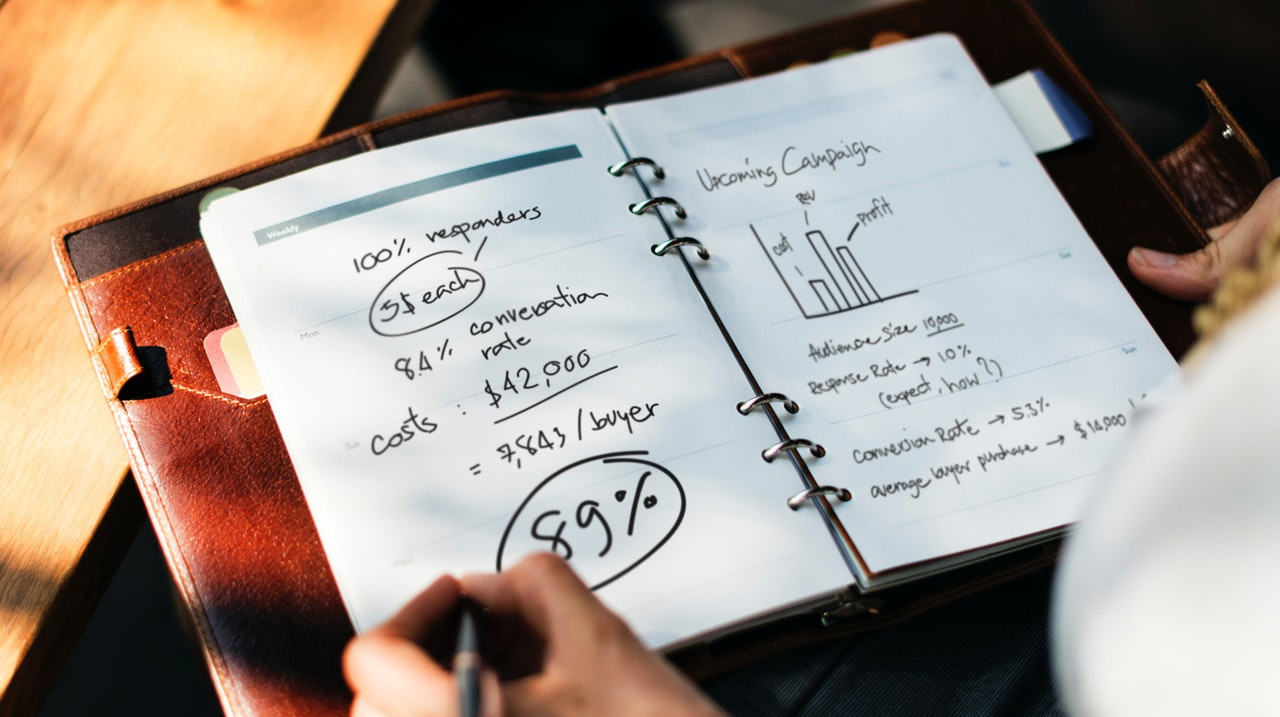 Weekly
100% responders
5$ each
8.4% conversation
rate
costs : $42,000
= 7,843 / buyer
89%
Mon
Tue
Wed
Upcoming Campaign
Rev
cost
Profit
Audience Size 10,000
Response Rate → 10%
(expect, how?)
Conversion Rate → 5.3%
average buyer purchase → $14,000
Sun